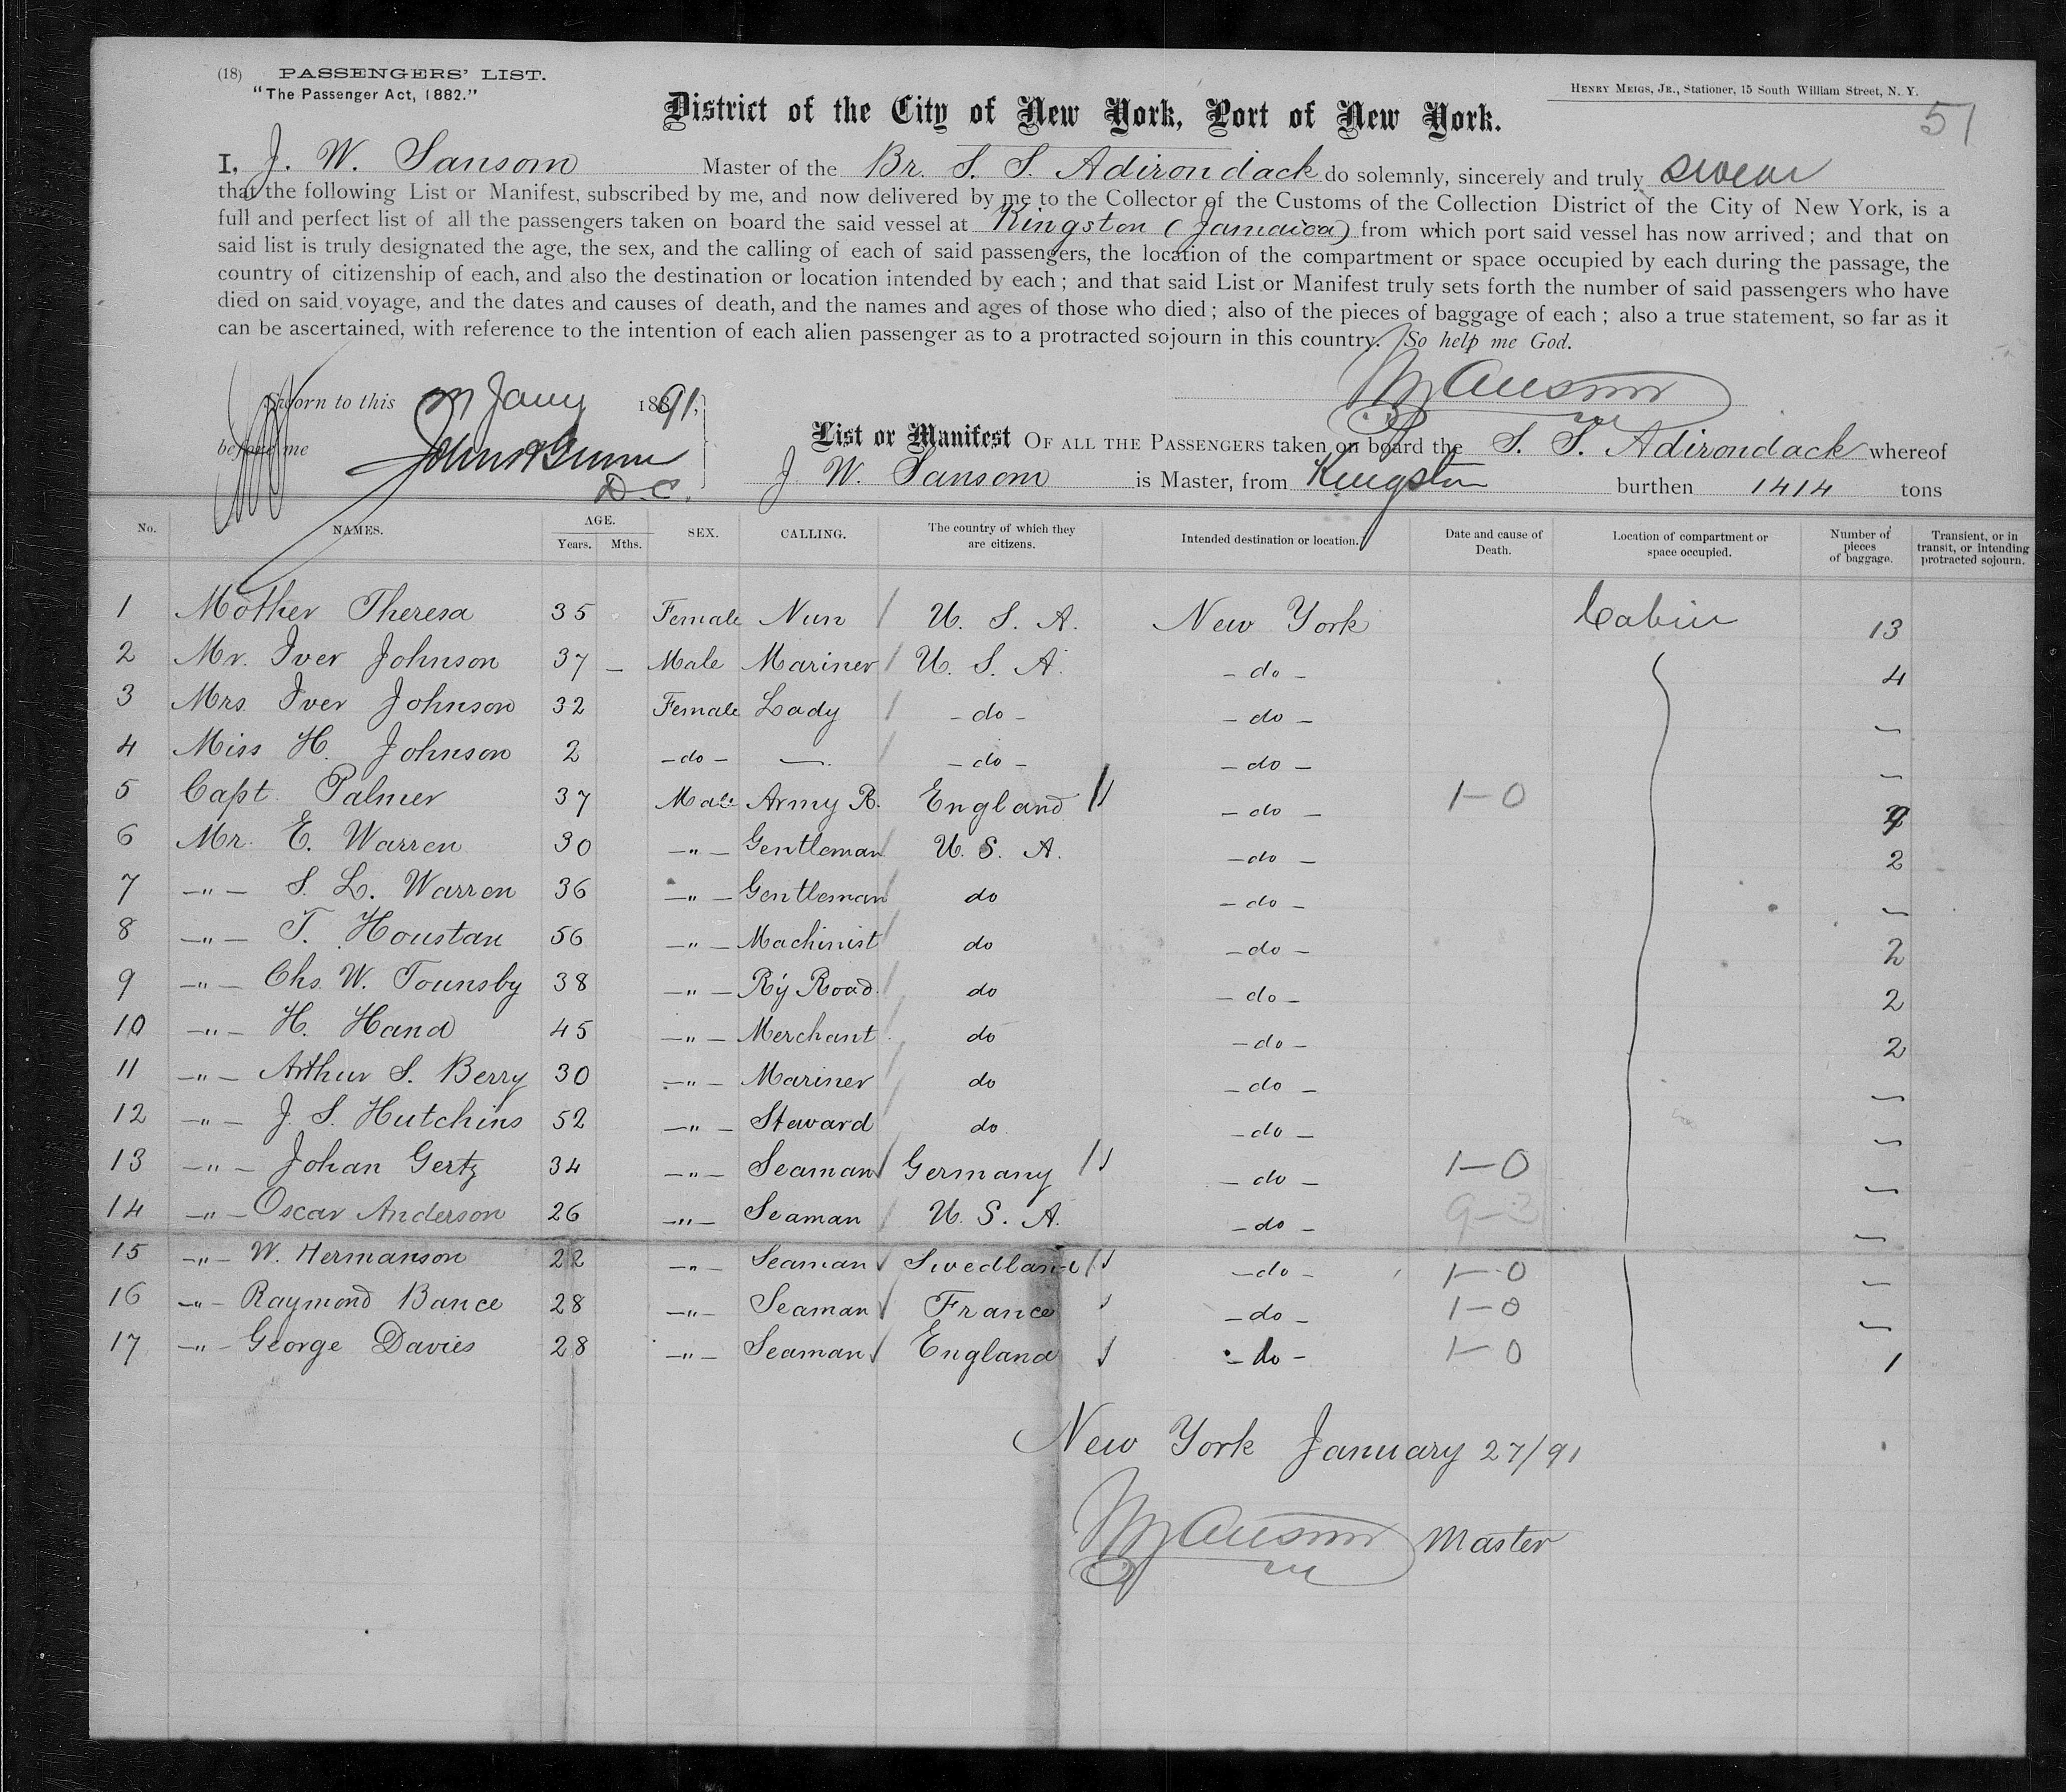 (18) PASSENGERS' LIST.
"The Passenger Act, 1882."
HENRY MEIGS, JR., Stationer, 15 South William Street, N. Y.
51
District of the City of New York, Port of New York.
I, J. W. Sansom Master of the Br. S. S. Adirondack do solemnly, sincerely and truly swear
that the following List or Manifest, subscribed by me, and now delivered by me to the Collector of the Customs of the Collection District of the City of New York, is a
full and perfect list of all the passengers taken on board the said vessel at Kingston (Jamaica) from which port said vessel has now arrived; and that on
said list is truly designated the age, the sex, and the calling of each of said passengers, the location of the compartment or space occupied by each during the passage, the
country of citizenship of each, and also the destination or location intended by each; and that said List or Manifest truly sets forth the number of said passengers who have
died on said voyage, and the dates and causes of death, and the names and ages of those who died; also of the pieces of baggage of each; also a true statement, so far as it
can be ascertained, with reference to the intention of each alien passenger as to a protracted sojourn in this country. So help me God.
Sworn to this Jany 1891,
before me
D. C.
List or Manifest OF ALL THE PASSENGERS taken on board the S. S. Adirondack whereof
J W. Sansom is Master, from Kingston burthen 1414 tons
No. NAMES. AGE. Years. Mths. SEX. CALLING. The country of which they are citizens. Intended destination or location. Date and cause of Death. Location of compartment or space occupied. Number of pieces of baggage. Transient, or in transit, or intending protracted sojourn.
1 Mother Theresa 35 Female Nun / U. S. A. New York Cabin 13
2 Mr. Iver Johnson 37 — Male Mariner / U. S. A. - do - 4
3 Mrs Iver Johnson 32 Female Lady / - do - - do - —
4 Miss H. Johnson 2 - do - — / - do - - do - —
5 Capt. Palmer 37 Male Army R. England - do - 1-0
6 Mr. E. Warren 30 —"— Gentleman U. S. A. - do - 2
7 —"— S. L. Warren 36 —"— Gentleman do - do - —
8 —"— T. Houstan 56 —"— Machinist do - do - 2
9 —"— Chs. W. Tounsby 38 —"— Ry Road. do - do - 2
10 —"— H. Hand 45 —"— Merchant do - do - 2
11 —"— Arthur S. Berry 30 —"— Mariner do - do - —
12 —"— J. S. Hutchins 52 —"— Steward do - do - —
13 —"— Johan Gertz 34 —"— Seaman Germany - do - 1-0 —
14 —"— Oscar Anderson 26 —"— Seaman U. S. A. - do - 9-3 —
15 —"— W. Hermanson 22 —"— Seaman Swedland - do - 1-0 —
16 —"— Raymond Bance 28 —"— Seaman France - do - 1-0 —
17 —"— George Davies 28 —"— Seaman England - do - 1-0 1
New York January 27/91
Master